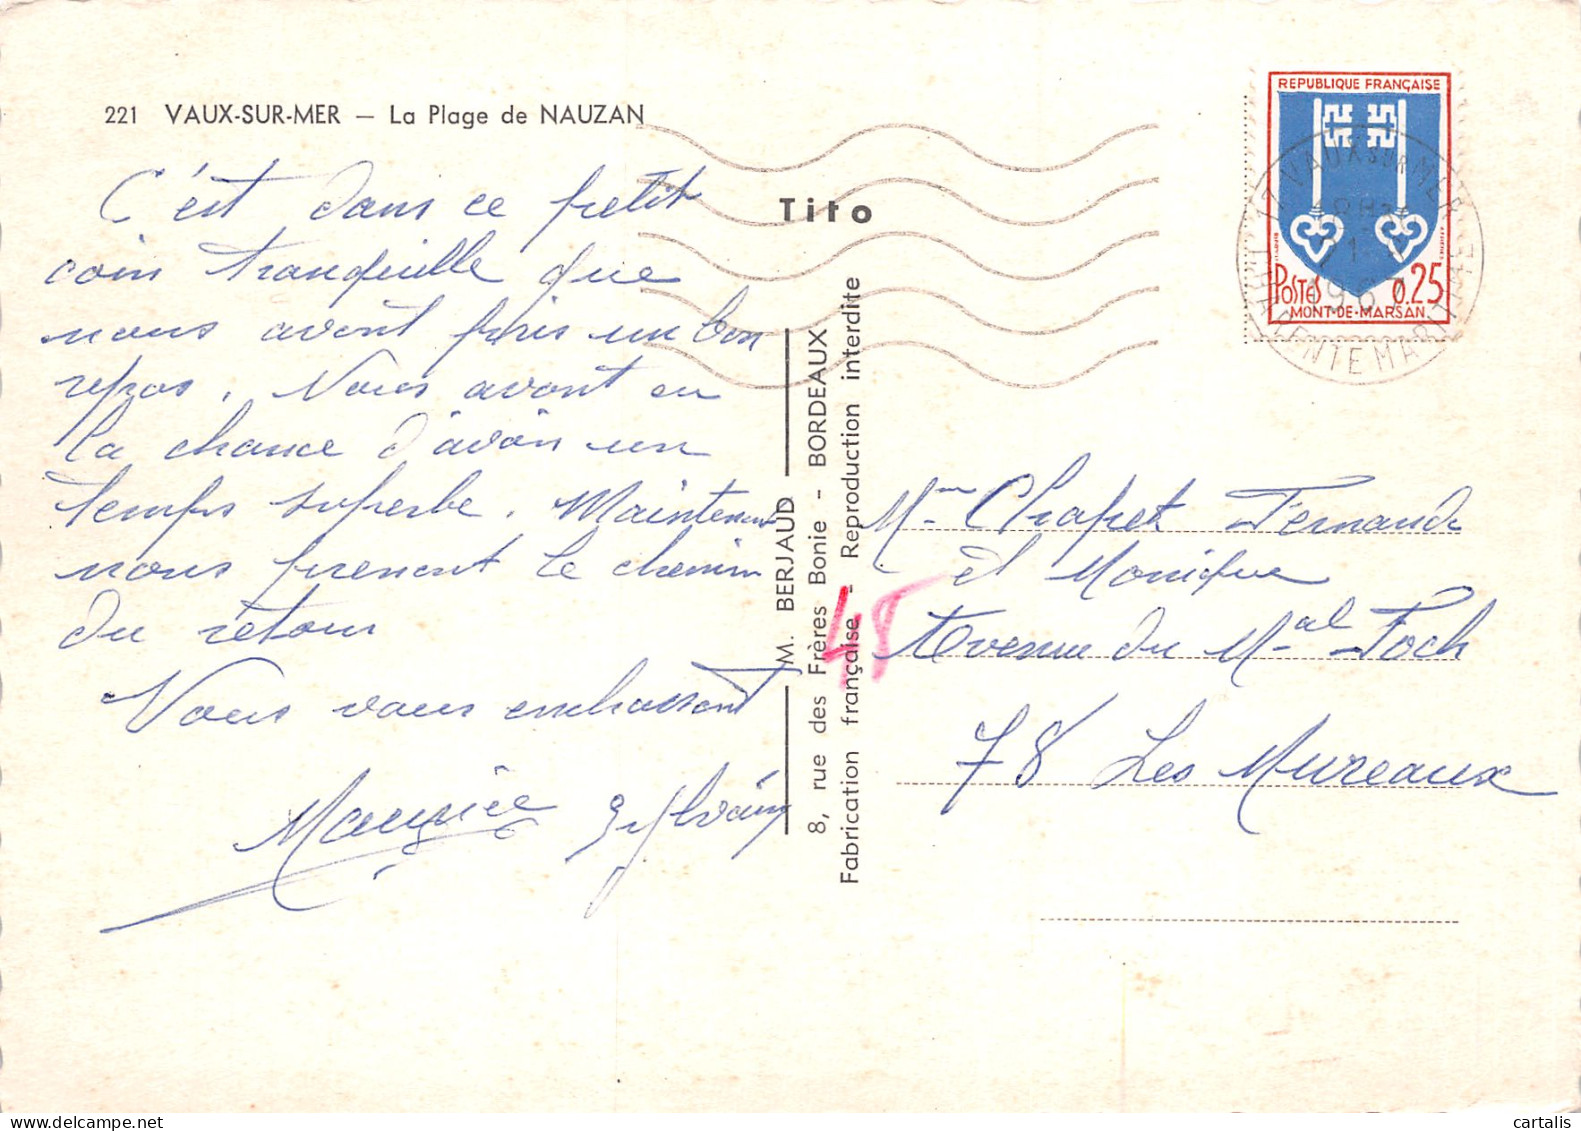 221 VAUX-SUR-MER — La Plage de NAUZAN
C'est dans ce petit
coin tranquille que
nous avont pris un bon
repos. Nous avont eu
la chance d'avoir un
temps superbe. Maintenant
nous prenont le chemin
du retour
Nous vous embrassont
Maurice Sylvain
Tito
M. BERJAUD
8, rue des Frères Bonie - BORDEAUX
Fabrication française - Reproduction interdite
REPUBLIQUE FRANÇAISE
POSTES 0,25
MONT-DE-MARSAN
VAUX SUR MER
1967
CHARENTE MARITIME
Mme Chapet Fernande
et Monique
Avenue du Mal Foch
78 Les Mureaux
cartalis